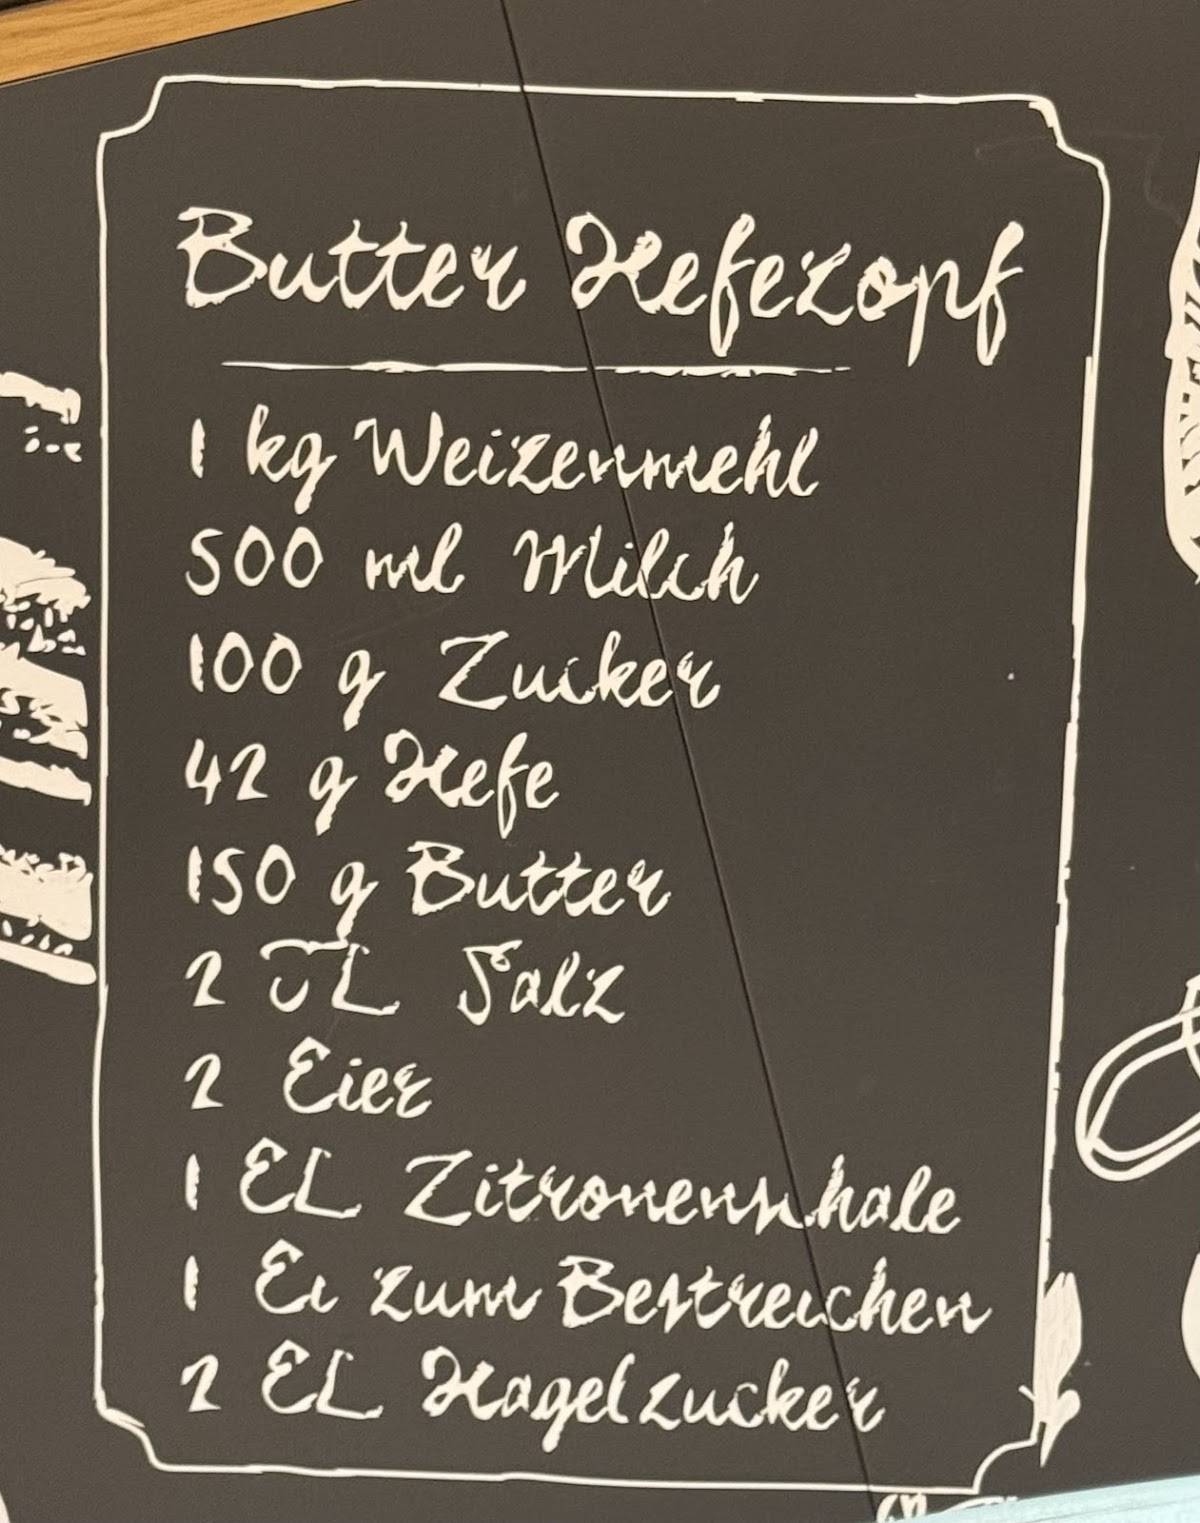 Butter Hefezopf
1 kg Weizenmehl
500 ml Milch
100 g Zucker
42 g Hefe
150 g Butter
2 TL Salz
2 Eier
1 EL Zitronenschale
1 Ei zum Bestreichen
2 EL Hagelzucker